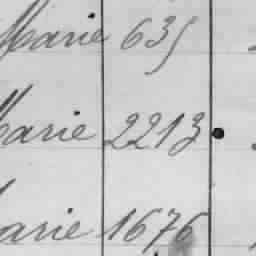 Marie 635
Marie 2213
Marie 1676